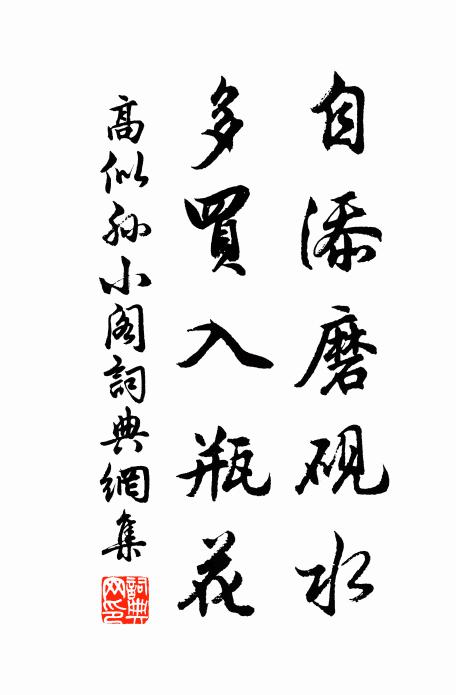 自添磨硯水
多買入瓶花
高似孫小閣詞典網集
詞典網印